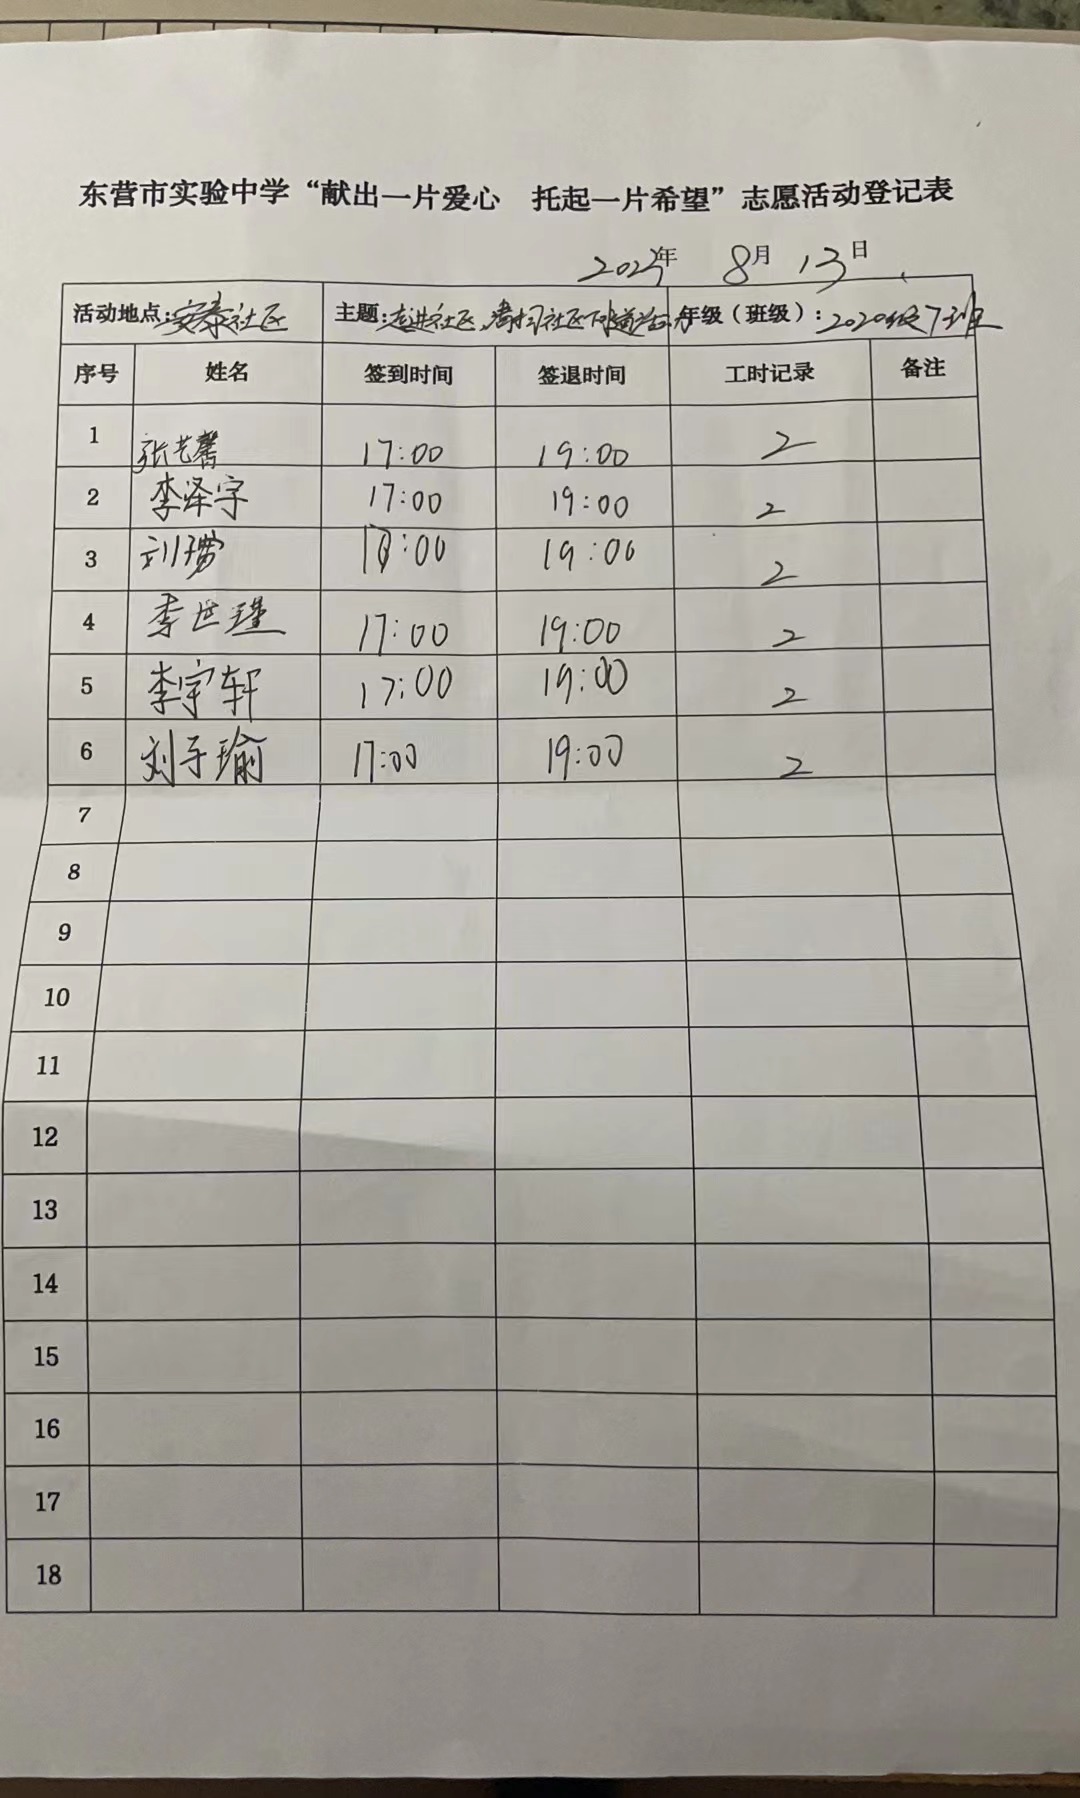 东营市实验中学“献出一片爱心 托起一片希望”志愿活动登记表
年 8月13日
活动地点:安泰社区 主题:走进社区,清扫社区 年级（班级）:2020级7班
序号 姓名 签到时间 签退时间 工时记录 备注
1 张艺馨 17:00 19:00 2
2 李泽宇 17:00 19:00 2
3 刘 :00 19:00 2
4 李世瑾 17:00 19:00 2
5 李宇轩 17:00 19:00 2
6 刘子瑜 17:00 19:00 2
7
8
9
10
11
12
13
14
15
16
17
18